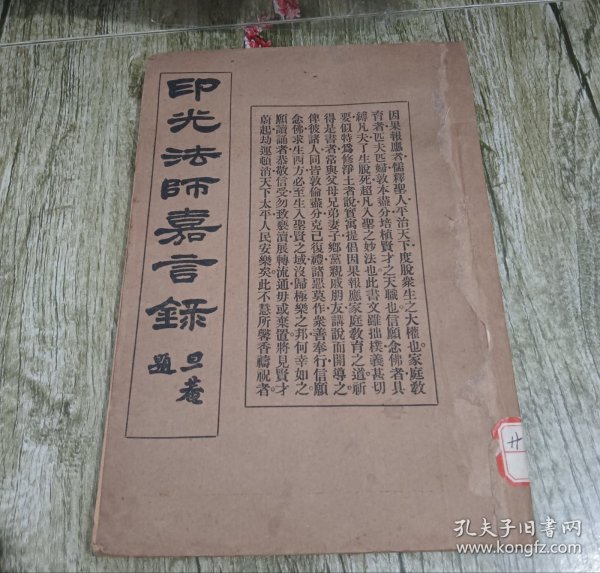 印光法師嘉言錄
旦菴
題
因果報應者儒釋聖人平治天下度脫衆生之大權也家庭教
育者匹夫匹婦敦本盡分培植賢才之天職也信願念佛者具
縛凡夫了生脫死超凡入聖之妙法也此書文雖拙樸義甚切
要似特爲修淨土者說實寓提倡因果報應家庭教育之道祈
得是書者常與父母兄弟妻子鄉黨親戚朋友講說而開導之
俾彼諸人同皆敦倫盡分克己復禮諸惡莫作衆善奉行信願
念佛求生西方必至生入聖賢之域沒歸極樂之邦何幸如之
願讀誦者恭敬信受勿致褻瀆展轉流通毋或棄置將見賢才
蔚起劫運頓消天下太平人民安樂矣此不慧所馨香禱祝者
廿
孔夫子旧书网
www.kongfz.com